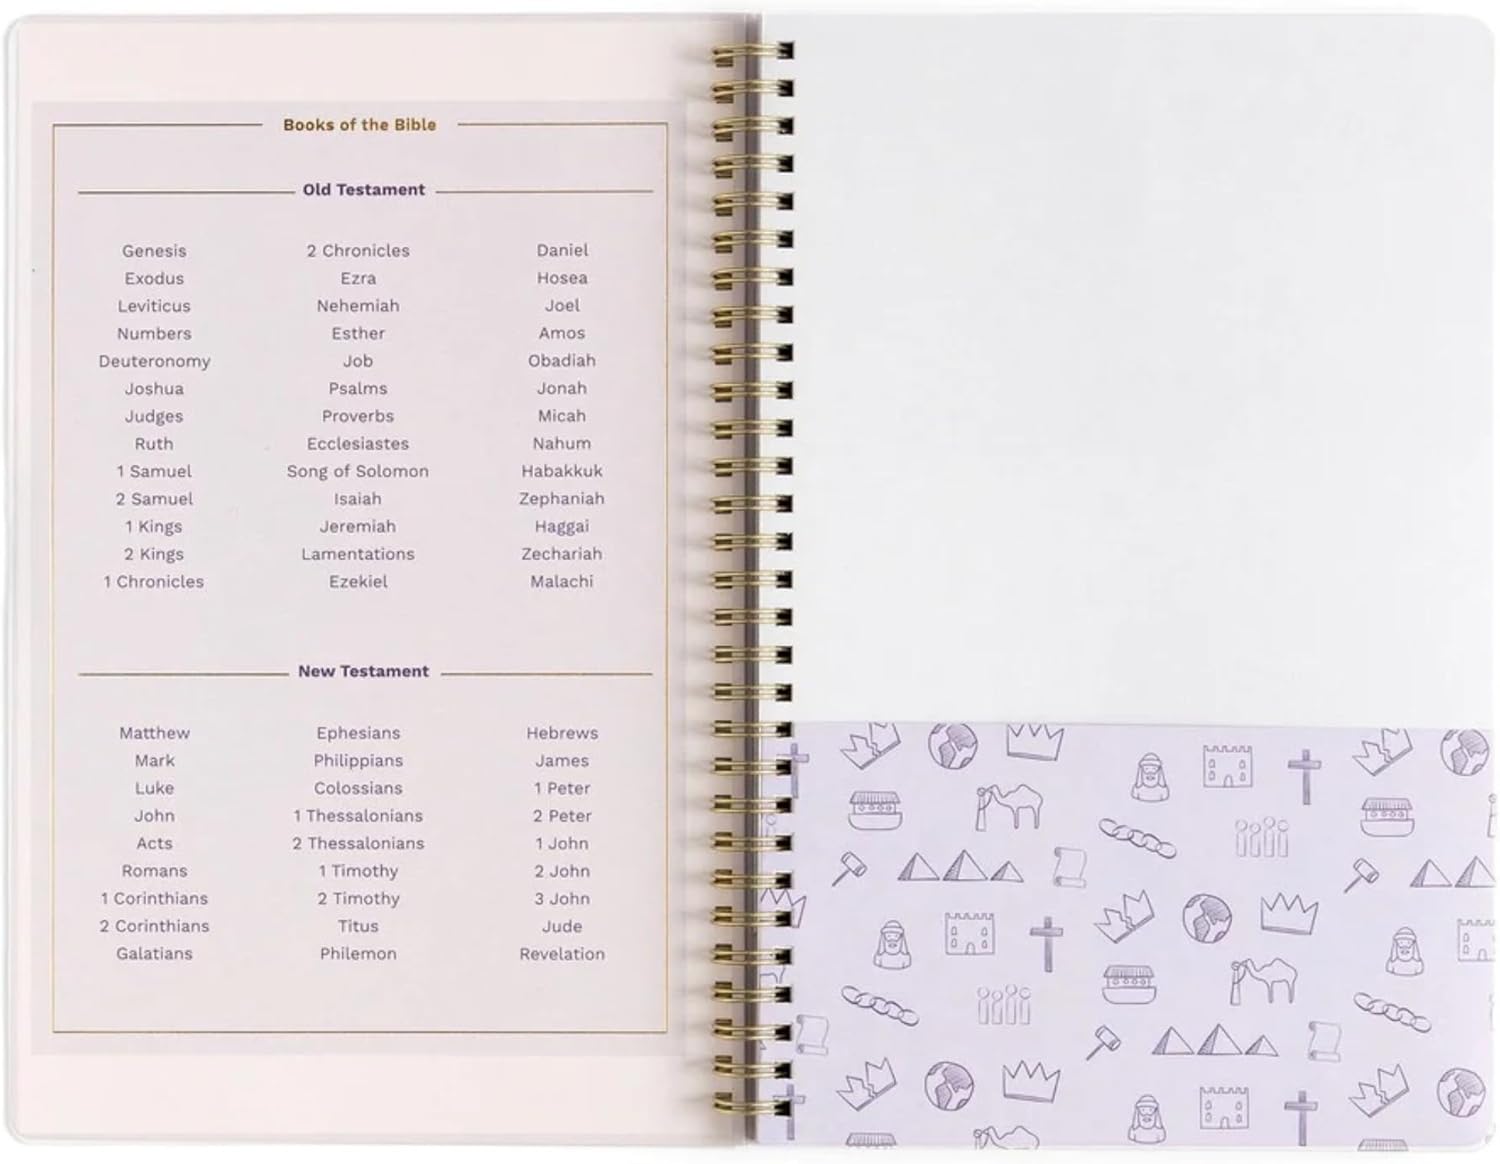 Books of the Bible
Old Testament
Genesis
Exodus
Leviticus
Numbers
Deuteronomy
Joshua
Judges
Ruth
1 Samuel
2 Samuel
1 Kings
2 Kings
1 Chronicles
2 Chronicles
Ezra
Nehemiah
Esther
Job
Psalms
Proverbs
Ecclesiastes
Song of Solomon
Isaiah
Jeremiah
Lamentations
Ezekiel
Daniel
Hosea
Joel
Amos
Obadiah
Jonah
Micah
Nahum
Habakkuk
Zephaniah
Haggai
Zechariah
Malachi
New Testament
Matthew
Mark
Luke
John
Acts
Romans
1 Corinthians
2 Corinthians
Galatians
Ephesians
Philippians
Colossians
1 Thessalonians
2 Thessalonians
1 Timothy
2 Timothy
Titus
Philemon
Hebrews
James
1 Peter
2 Peter
1 John
2 John
3 John
Jude
Revelation